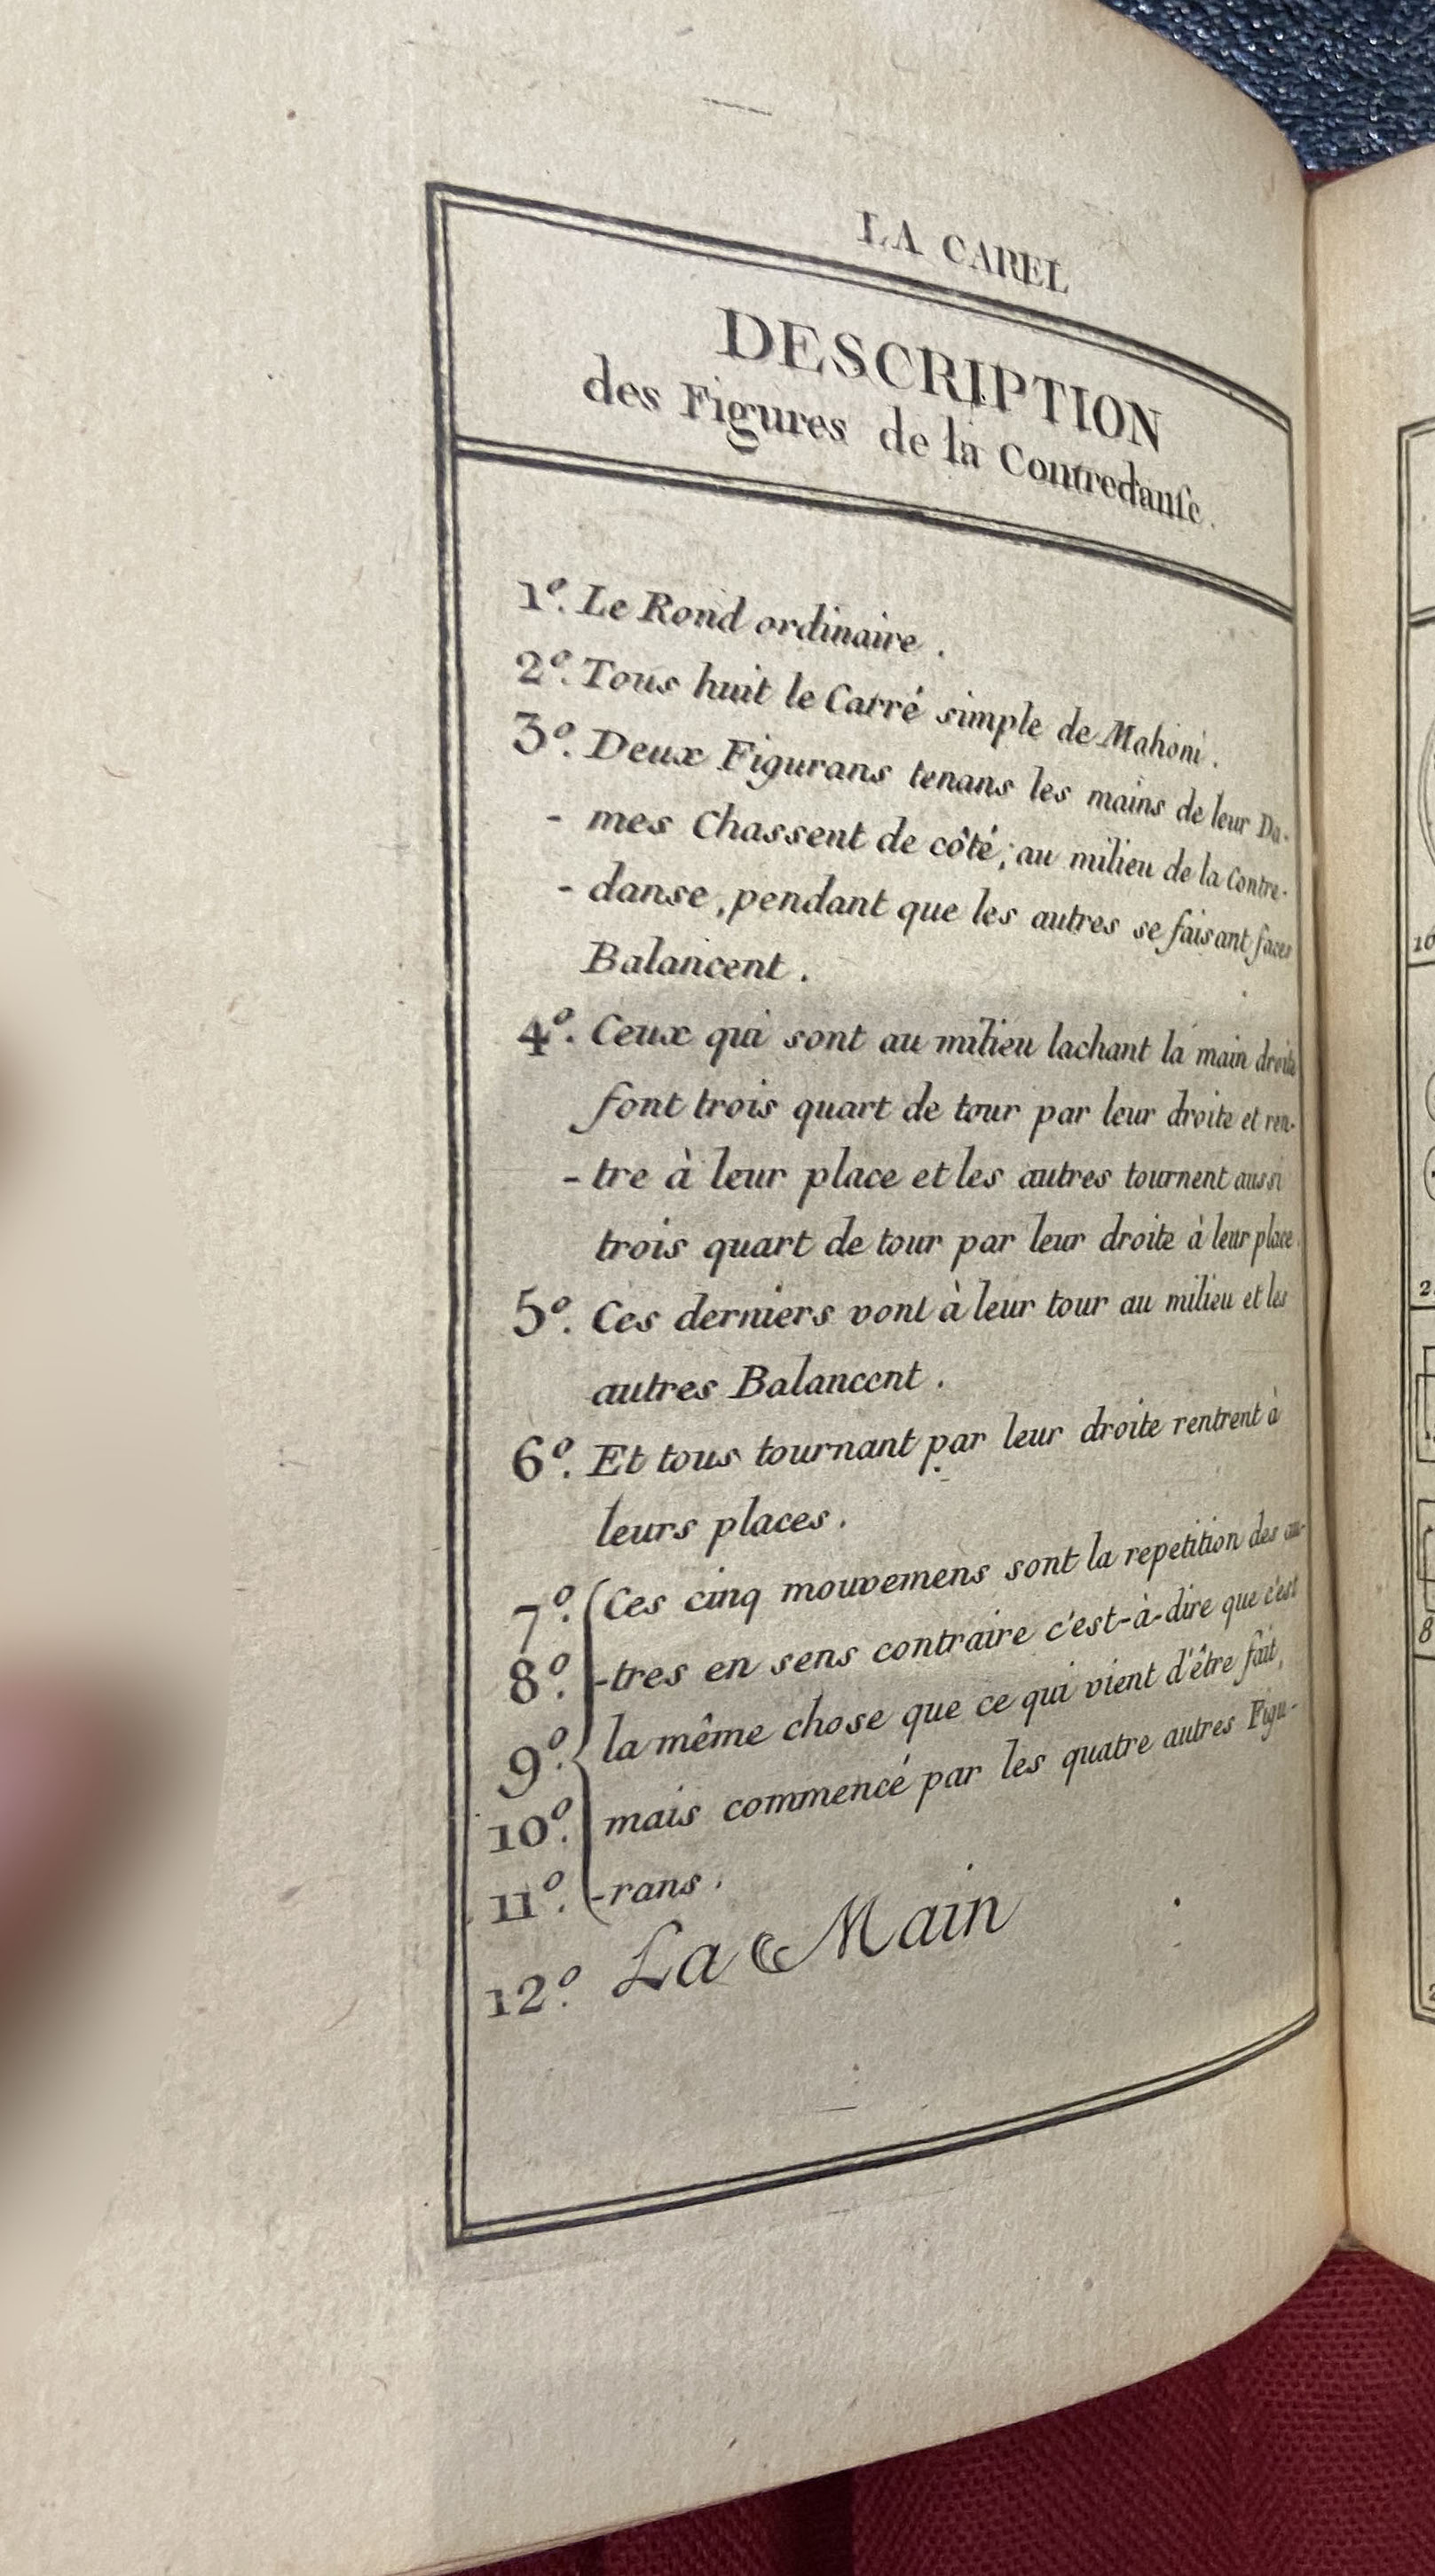 LA CAREL
DESCRIPTION
des Figures de la Contredanſe.
1º. Le Rond ordinaire.
2º. Tous huit le Carré simple de Mahoni.
3º. Deux Figurans tenans les mains de leur Da-
- mes Chassent de côté; au milieu de la Contre-
- danse, pendant que les autres se faisant faces
Balancent.
4º. Ceux qui sont au milieu lachant la main droite
font trois quart de tour par leur droite et ren-
- tre à leur place et les autres tournent aussi
trois quart de tour par leur droite à leur place.
5º. Ces derniers vont à leur tour au milieu et les
autres Balancent.
6º. Et tous tournant par leur droite rentrent à
leurs places.
7º. Ces cinq mouvemens sont la repetition des au-
8º. -tres en sens contraire c'est-à-dire que c'est
9º. la même chose que ce qui vient d'être fait,
10º. mais commencé par les quatre autres Figu-
11º. -rans.
12º. La Main
10
2
8
2